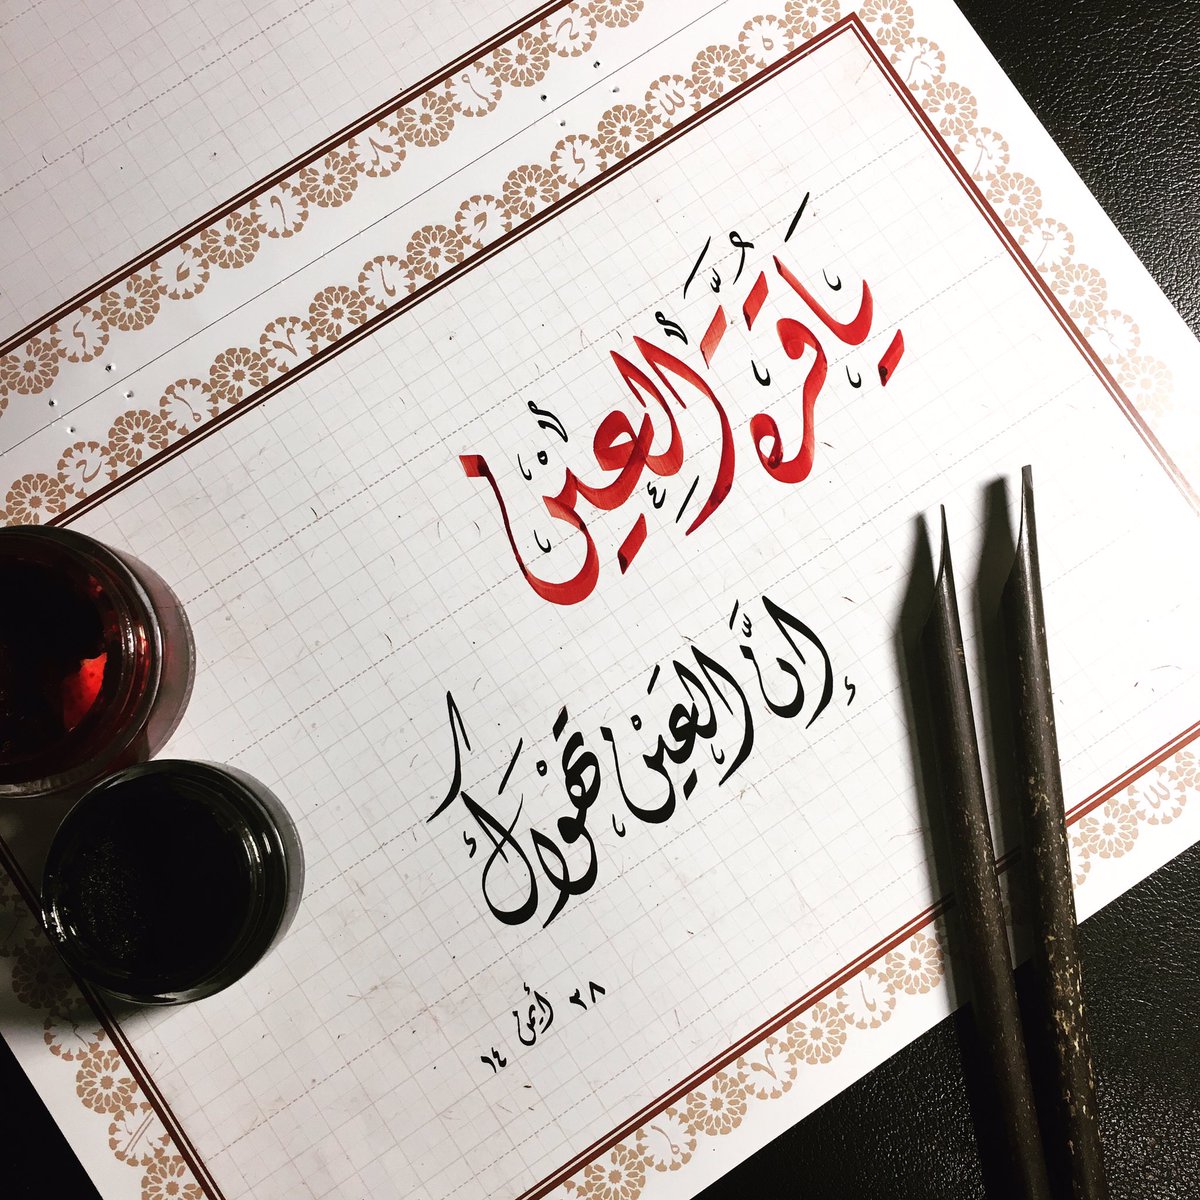 يا قرة العين
إنَّ العَيْن تَهْوَاك
٢٨ أيمن ١٤